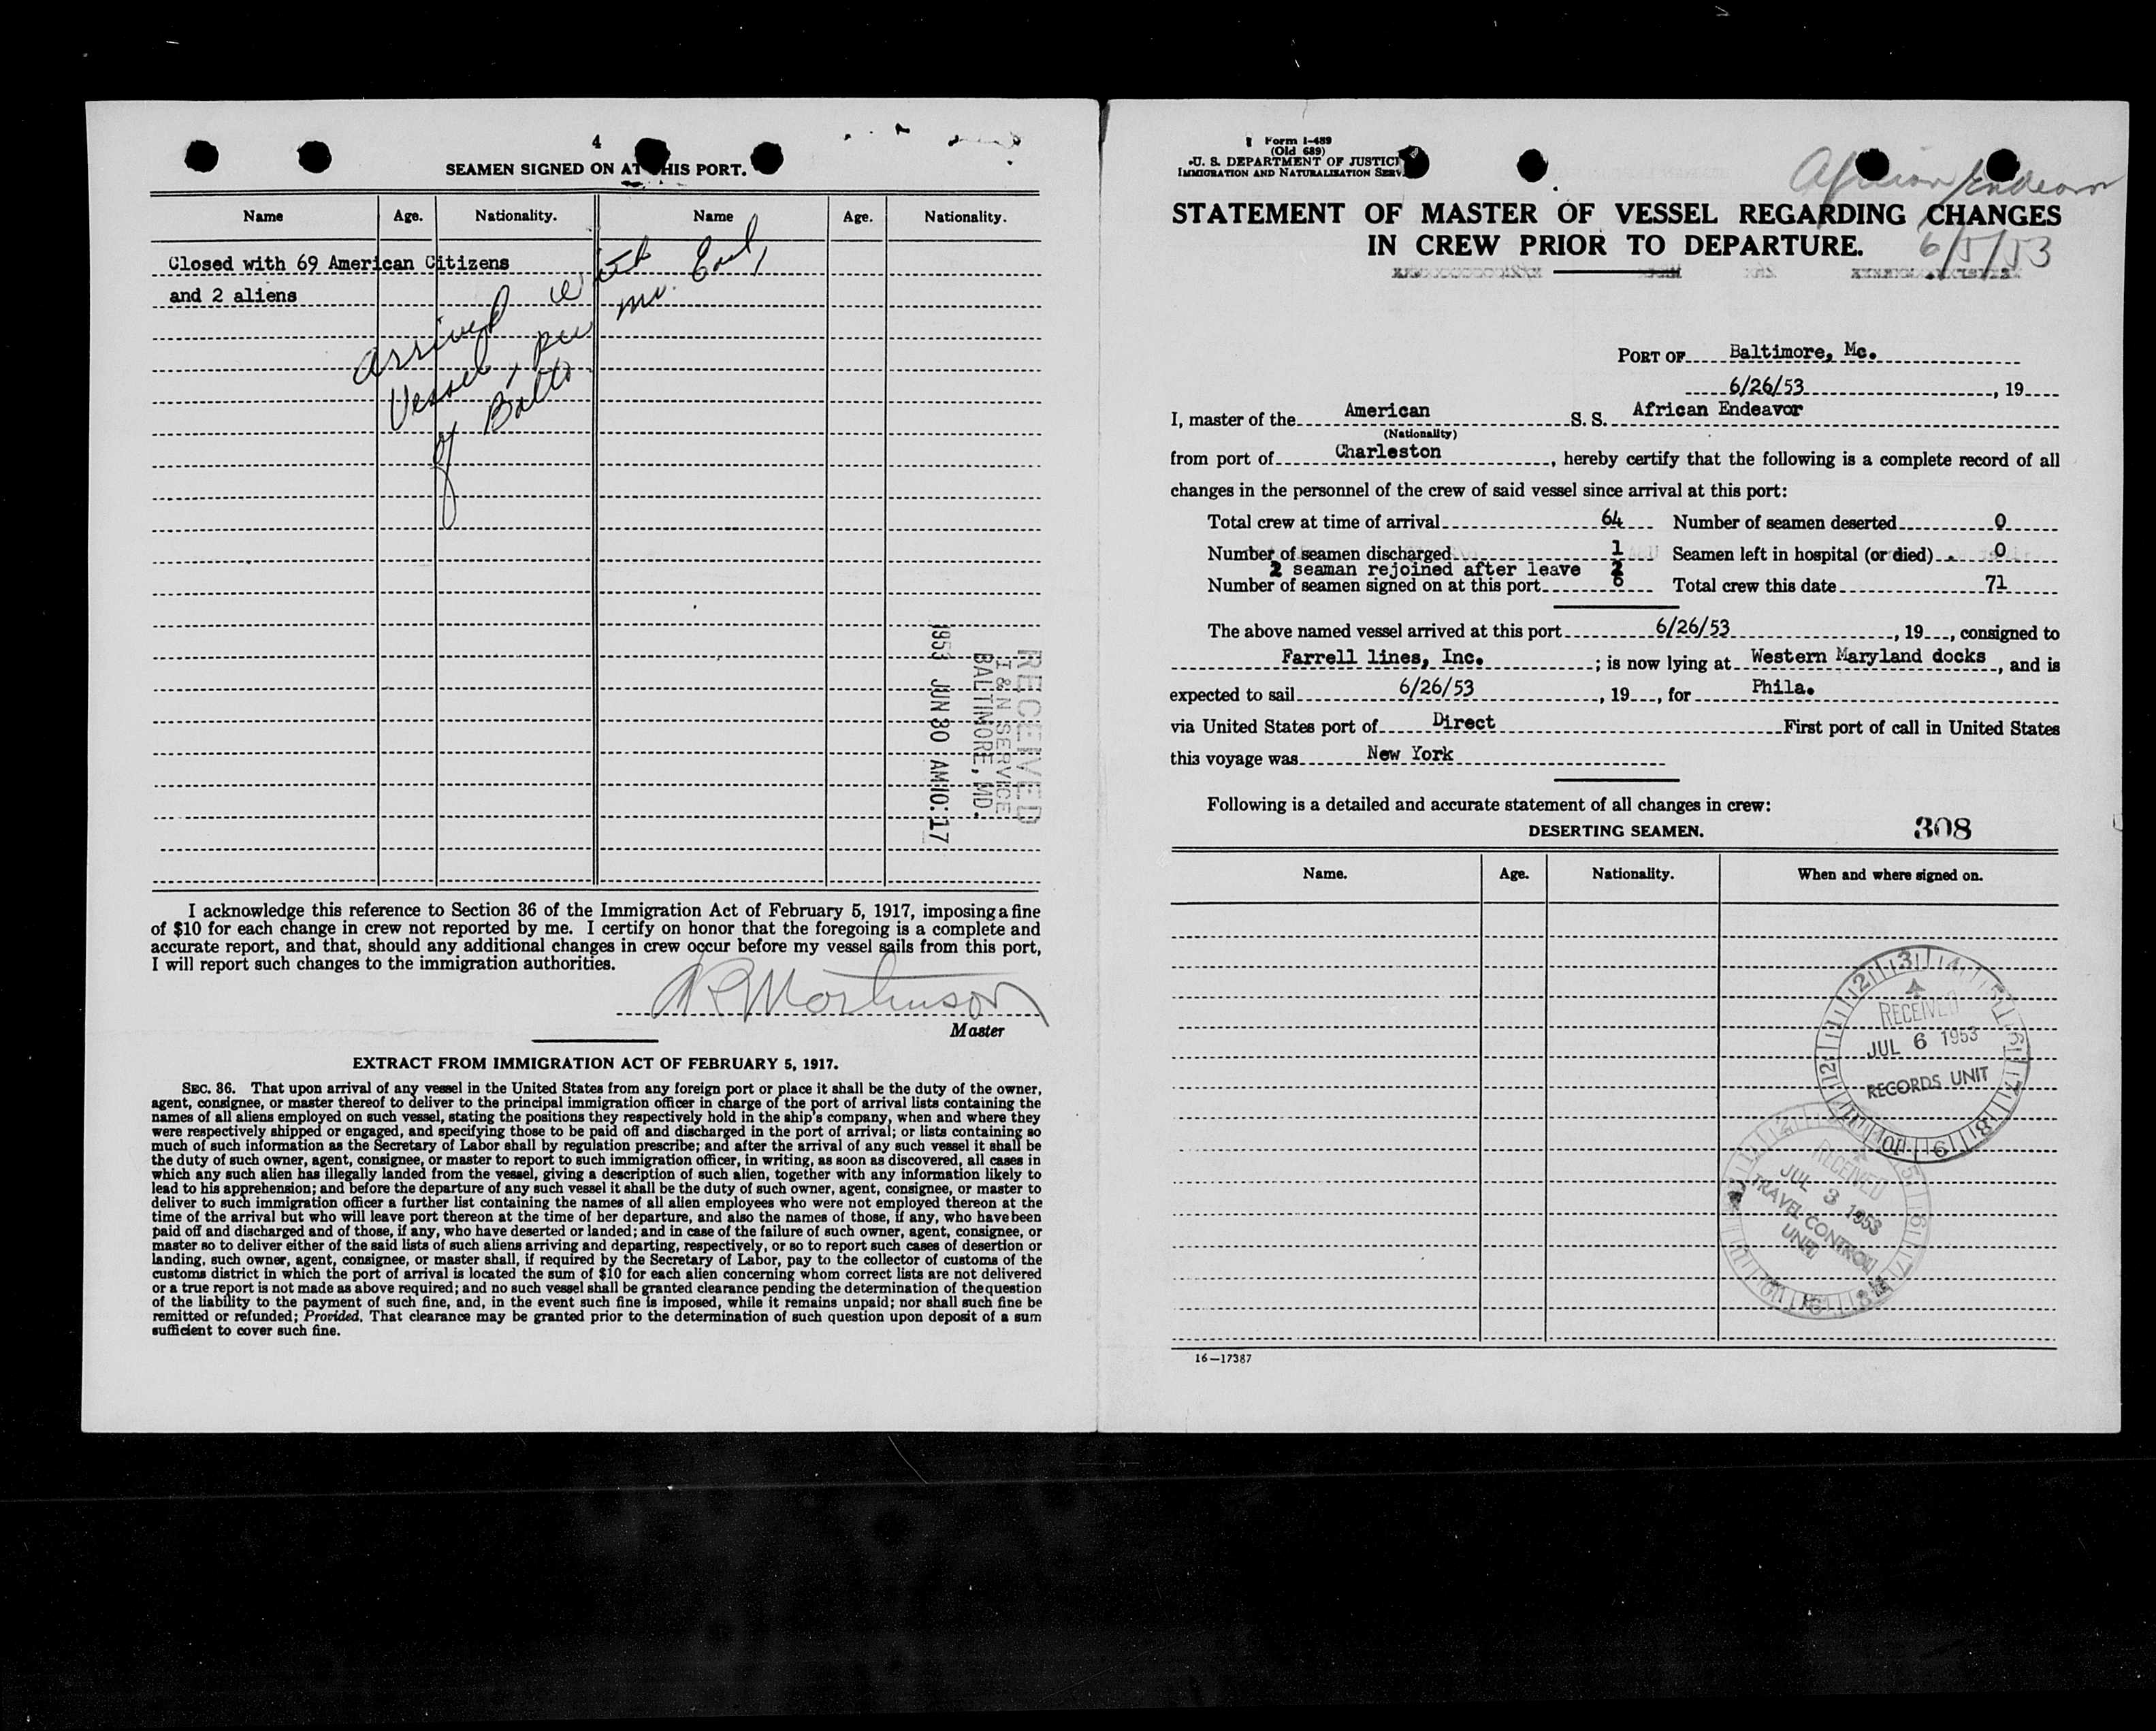 4
SEAMEN SIGNED ON AT THIS PORT.
Name Age. Nationality. Name Age. Nationality.
Closed with 69 American Citizens
and 2 aliens
arrived with
Vessel, per Mr. Earl,
of Balto
RECEIVED
I & N SERVICE
BALTIMORE, MD.
1953 JUN 30 AM 10:17
I acknowledge this reference to Section 36 of the Immigration Act of February 5, 1917, imposing a fine
of $10 for each change in crew not reported by me. I certify on honor that the foregoing is a complete and
accurate report, and that, should any additional changes in crew occur before my vessel sails from this port,
I will report such changes to the immigration authorities.
Master
EXTRACT FROM IMMIGRATION ACT OF FEBRUARY 5, 1917.
SEC. 36. That upon arrival of any vessel in the United States from any foreign port or place it shall be the duty of the owner,
agent, consignee, or master thereof to deliver to the principal immigration officer in charge of the port of arrival lists containing the
names of all aliens employed on such vessel, stating the positions they respectively hold in the ship's company, when and where they
were respectively shipped or engaged, and specifying those to be paid off and discharged in the port of arrival; or lists containing so
much of such information as the Secretary of Labor shall by regulation prescribe; and after the arrival of any such vessel it shall be
the duty of such owner, agent, consignee, or master to report to such immigration officer, in writing, as soon as discovered, all cases in
which any such alien has illegally landed from the vessel, giving a description of such alien, together with any information likely to
lead to his apprehension; and before the departure of any such vessel it shall be the duty of such owner, agent, consignee, or master to
deliver to such immigration officer a further list containing the names of all alien employees who were not employed thereon at the
time of the arrival but who will leave port thereon at the time of her departure, and also the names of those, if any, who have been
paid off and discharged and of those, if any, who have deserted or landed; and in case of the failure of such owner, agent, consignee, or
master so to deliver either of the said lists of such aliens arriving and departing, respectively, or so to report such cases of desertion or
landing, such owner, agent, consignee, or master shall, if required by the Secretary of Labor, pay to the collector of customs of the
customs district in which the port of arrival is located the sum of $10 for each alien concerning whom correct lists are not delivered
or a true report is not made as above required; and no such vessel shall be granted clearance pending the determination of the question
of the liability to the payment of such fine, and, in the event such fine is imposed, while it remains unpaid; nor shall such fine be
remitted or refunded; Provided, That clearance may be granted prior to the determination of such question upon deposit of a sum
sufficient to cover such fine.
Form I-489
(Old 689)
U. S. DEPARTMENT OF JUSTICE
IMMIGRATION AND NATURALIZATION SERV.
African Endeavor
STATEMENT OF MASTER OF VESSEL REGARDING CHANGES
IN CREW PRIOR TO DEPARTURE.
6/5/53
PORT OF Baltimore, Mc.
6/26/53, 19
I, master of the American S. S. African Endeavor
(Nationality)
from port of Charleston, hereby certify that the following is a complete record of all
changes in the personnel of the crew of said vessel since arrival at this port:
Total crew at time of arrival 64 Number of seamen deserted 0
Number of seamen discharged 1 Seamen left in hospital (or died) 0
2 seaman rejoined after leave 2
Number of seamen signed on at this port 6 Total crew this date 71
The above named vessel arrived at this port 6/26/53, 19, consigned to
Farrell lines, Inc.; is now lying at Western Maryland docks, and is
expected to sail 6/26/53, 19, for Phila.
via United States port of Direct First port of call in United States
this voyage was New York
Following is a detailed and accurate statement of all changes in crew:
DESERTING SEAMEN. 308
Name. Age. Nationality. When and where signed on.
RECEIVED
JUL 6 1953
RECORDS UNIT
RECEIVED
JUL 3 1953
TRAVEL CONTROL
UNIT
16—17387